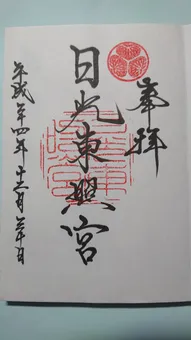 奉拝
日光東照宮
平成廿四年十二月三十日